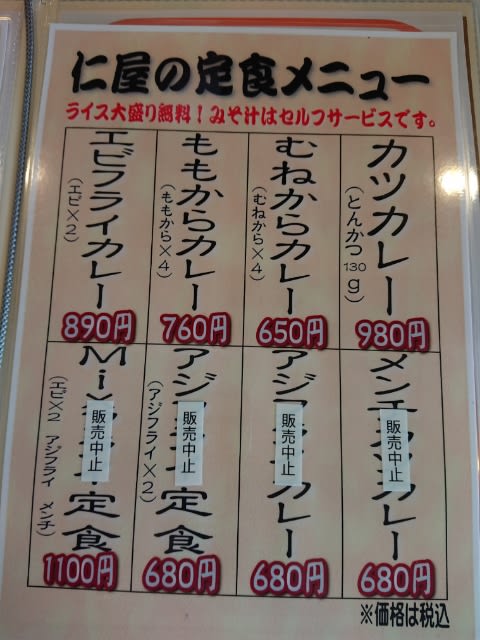 仁屋の定食メニュー
ライス大盛り無料！みそ汁はセルフサービスです。
カツカレー
(とんかつ130g)
980円
むねからカレー
(むねから×4)
650円
ももからカレー
(ももから×4)
760円
エビフライカレー
(エビ×2)
890円
メンチカツカレー
販売中止
680円
アジフライカレー
販売中止
680円
アジフライ定食
(アジフライ×2)
販売中止
680円
Mix 定食
(エビ×2 アジフライ メンチ)
販売中止
1100円
※価格は税込